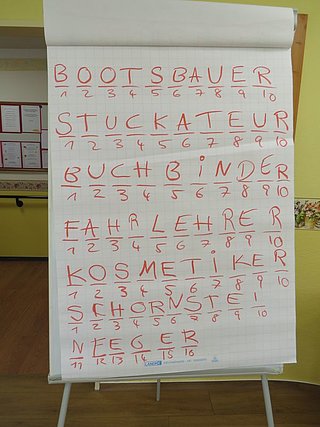 BOOTSBAUER
1 2 3 4 5 6 7 8 9 10
STUCKATEUR
1 2 3 4 5 6 7 8 9 10
BUCHBiNDER
1 2 3 4 5 6 7 8 9 10
FAHRLEHRER
1 2 3 4 5 6 7 8 9 10
KOSMETiKER
1 2 3 4 5 6 7 8 9 10
SCHORNSTEI
1 2 3 4 5 6 7 8 9 10
NFEGER
11 12 13 14 15 16